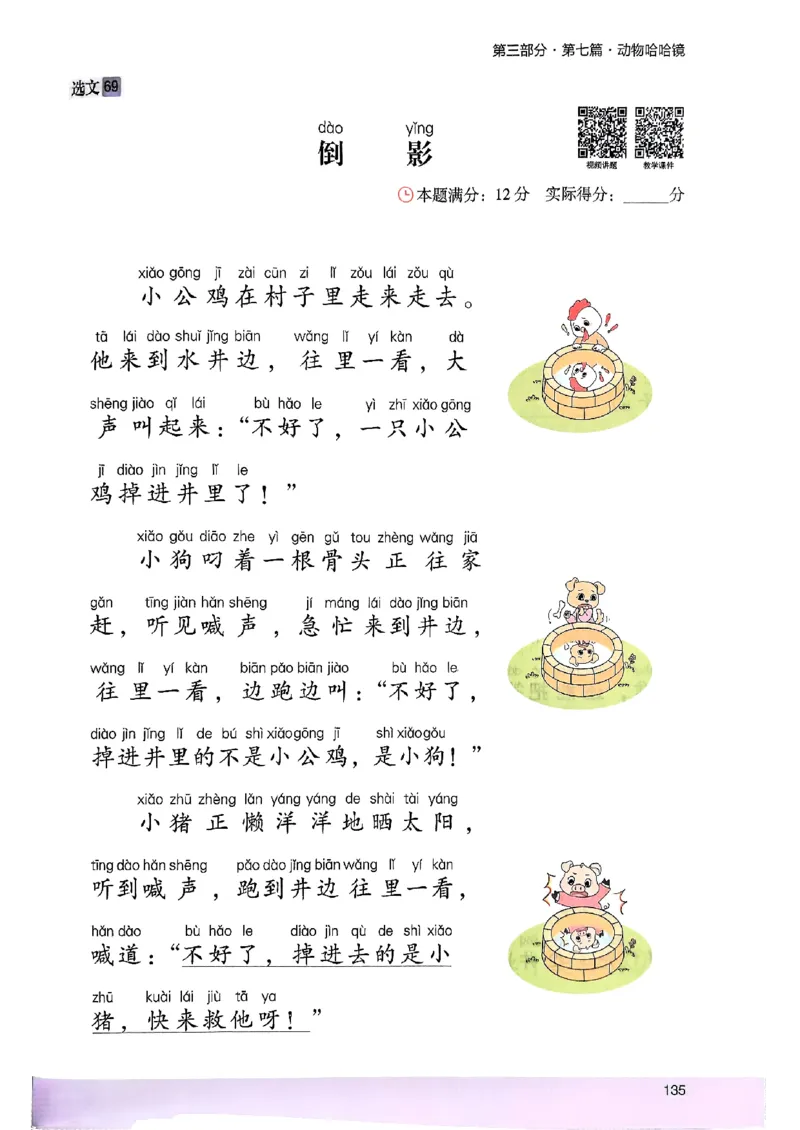 第三部分·第七篇·动物哈哈镜
选文 69
dào yǐng
倒 影
视频讲题 教学课件
本题满分：12分 实际得分：_____分
xiǎo gōng jī zài cūn zi lǐ zǒu lái zǒu qù
小公鸡在村子里走来走去。
tā lái dào shuǐ jǐng biān wǎng lǐ yí kàn dà
他来到水井边，往里一看，大
shēng jiào qǐ lái bù hǎo le yì zhī xiǎo gōng
声叫起来：“不好了，一只小公
jī diào jìn jǐng lǐ le
鸡掉进井里了！”
xiǎo gǒu diāo zhe yì gēn gǔ tou zhèng wǎng jiā
小狗叼着一根骨头正往家
gǎn tīng jiàn hǎn shēng jí máng lái dào jǐng biān
赶，听见喊声，急忙来到井边，
wǎng lǐ yí kàn biān pǎo biān jiào bù hǎo le
往里一看，边跑边叫：“不好了，
diào jìn jǐng lǐ de bú shì xiǎo gōng jī shì xiǎo gǒu
掉进井里的不是小公鸡，是小狗！”
xiǎo zhū zhèng lǎn yáng yáng de shài tài yáng
小猪正懒洋洋地晒太阳，
tīng dào hǎn shēng pǎo dào jǐng biān wǎng lǐ yí kàn
听到喊声，跑到井边往里一看，
hǎn dào bù hǎo le diào jìn qù de shì xiǎo
喊道：“不好了，掉进去的是小
zhū kuài lái jiù tā ya
猪，快来救他呀！”
135